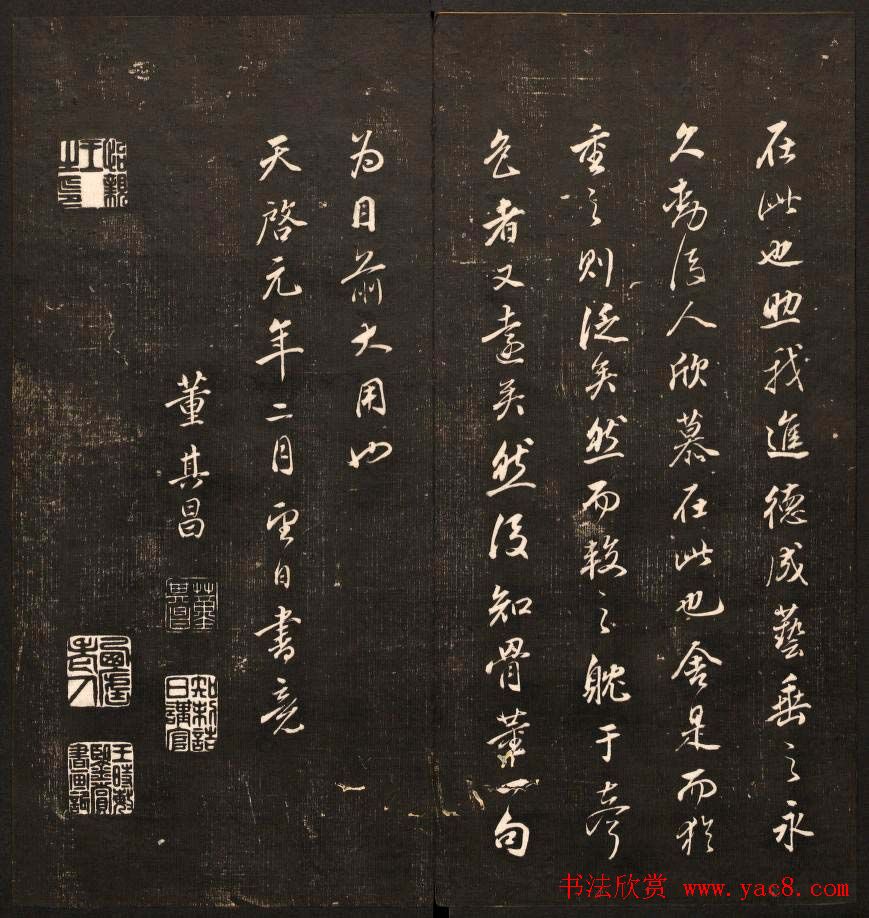 在此也助我進德成藝垂之永
久動後人欣慕在此也舍是而猶
重之則泛矣然而較之耽于奇
色者又遠矣然後知骨董一句
为目前大用也
天啓元年二月望日書竟
董其昌
董其昌
知制誥日講官
王時敏珍賞書畫記
书法欣赏 www.yac8.com